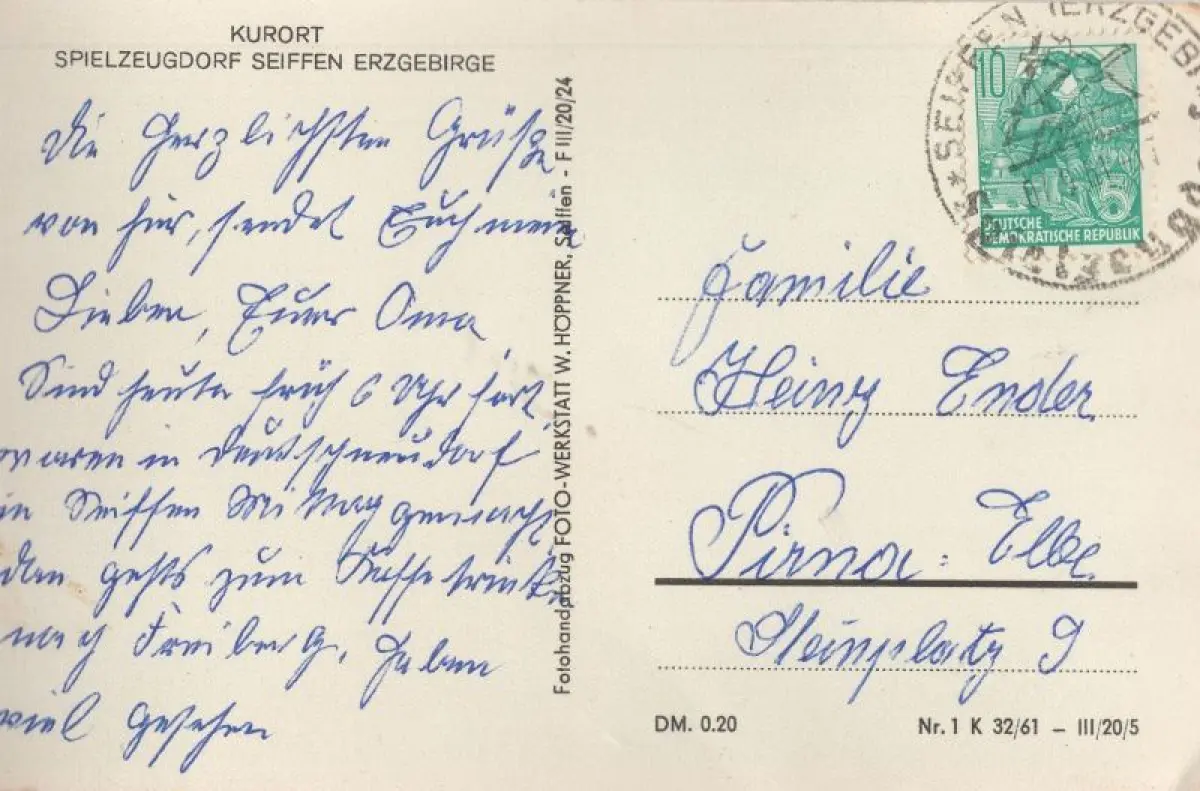 KURORT
SPIELZEUGDORF SEIFFEN ERZGEBIRGE
Die herzlichsten Grüße
von hier, sendet Euch meine
Lieben, Eure Oma
Sind heute früh 6 Uhr fort
waren in Deutschneudorf
in Seiffen Mittag gemacht
dann gehts zum Kaffe trinken
nach Freiberg, haben
viel gesehen
Fotohandabzug FOTO-WERKSTATT W. HÖPPNER, Seiffen - F III/20/24
SEIFFEN (ERZGEB
Spielzeugdorf
10
5
DEUTSCHE
DEMOKRATISCHE REPUBLIK
Familie
Heinz Ender
Pirna: Elbe
Steinplatz 9
DM. 0.20
Nr. 1 K 32/61 — III/20/5